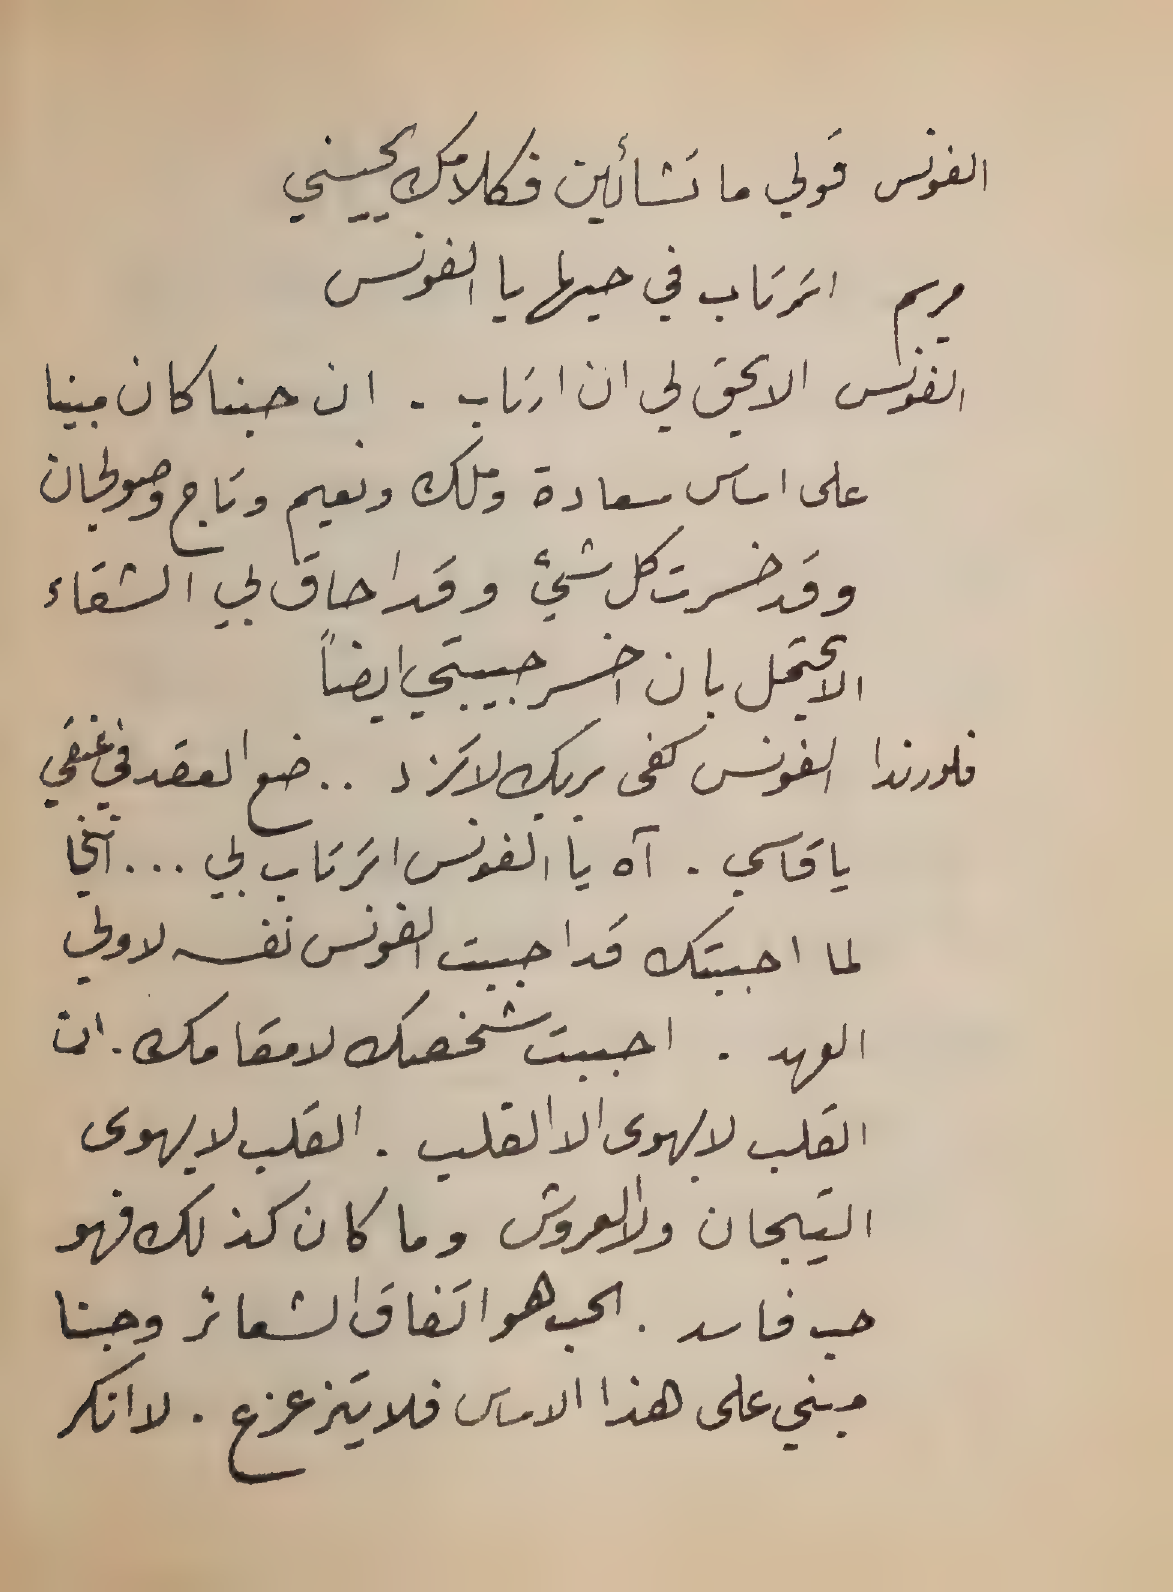 الفونس قولي ما تشائين فكلامك يحييني
مريم اترتاب في حبها يا الفونس
الفونس الا يحق لي ان ارتاب . ان حبنا كان مبنيا
على اساس سعادة وملك ونعيم وتاج وصولجان
وقد خسرت كل شيء وقد احاق بي الشقاء
الا يحتمل بان اخسر حبيبتي ايضاً
فلورندا الفونس كفى بربك لا تزد .. ضع العقد في عنقي
يا قاسي . آه يا الفونس اترتاب بي ... انني
لما احببتك قد احببت الفونس نفسه لا ولي
العهد . احببت شخصك لا مقامك . ان
القلب لا يهوى الا القلب . القلب لا يهوى
التيجان ولا العروش وما كان كذلك فهو
حب فاسد . الحب هو اتفاق الشعائر وحبنا
مبني على هذا الاساس فلا يتزعزع . لا انكر